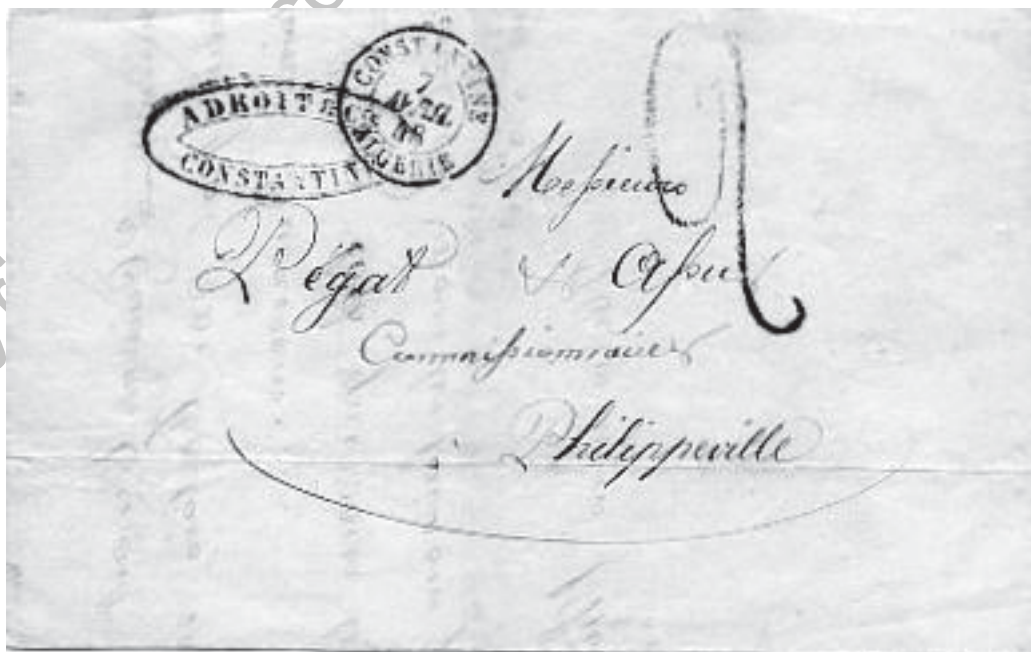 ADROIT &
CONSTANTIN
CONSTANTINE
7
AVRIL
48
ALGERIE
Messieurs
Pégat & Assié
Commissionnaires
à
Philippeville